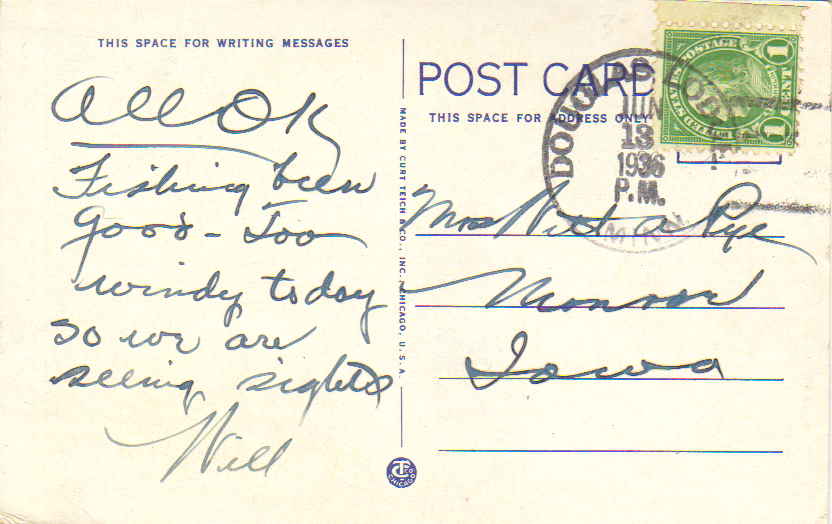 THIS SPACE FOR WRITING MESSAGES
All OK
Fishing been
Good - Too
windy today
so we are
seeing sights
Will
MADE BY CURT TEICH & CO., INC., CHICAGO, U.S.A.
CT
CHICAGO
POST CARD
THIS SPACE FOR ADDRESS ONLY
DOUGLAS LODGE
JUN
13
1936
P.M.
MINN.
UNITED STATES POSTAGE
1 CENT 1
Mrs Witt a Pye
Monroe
Iowa